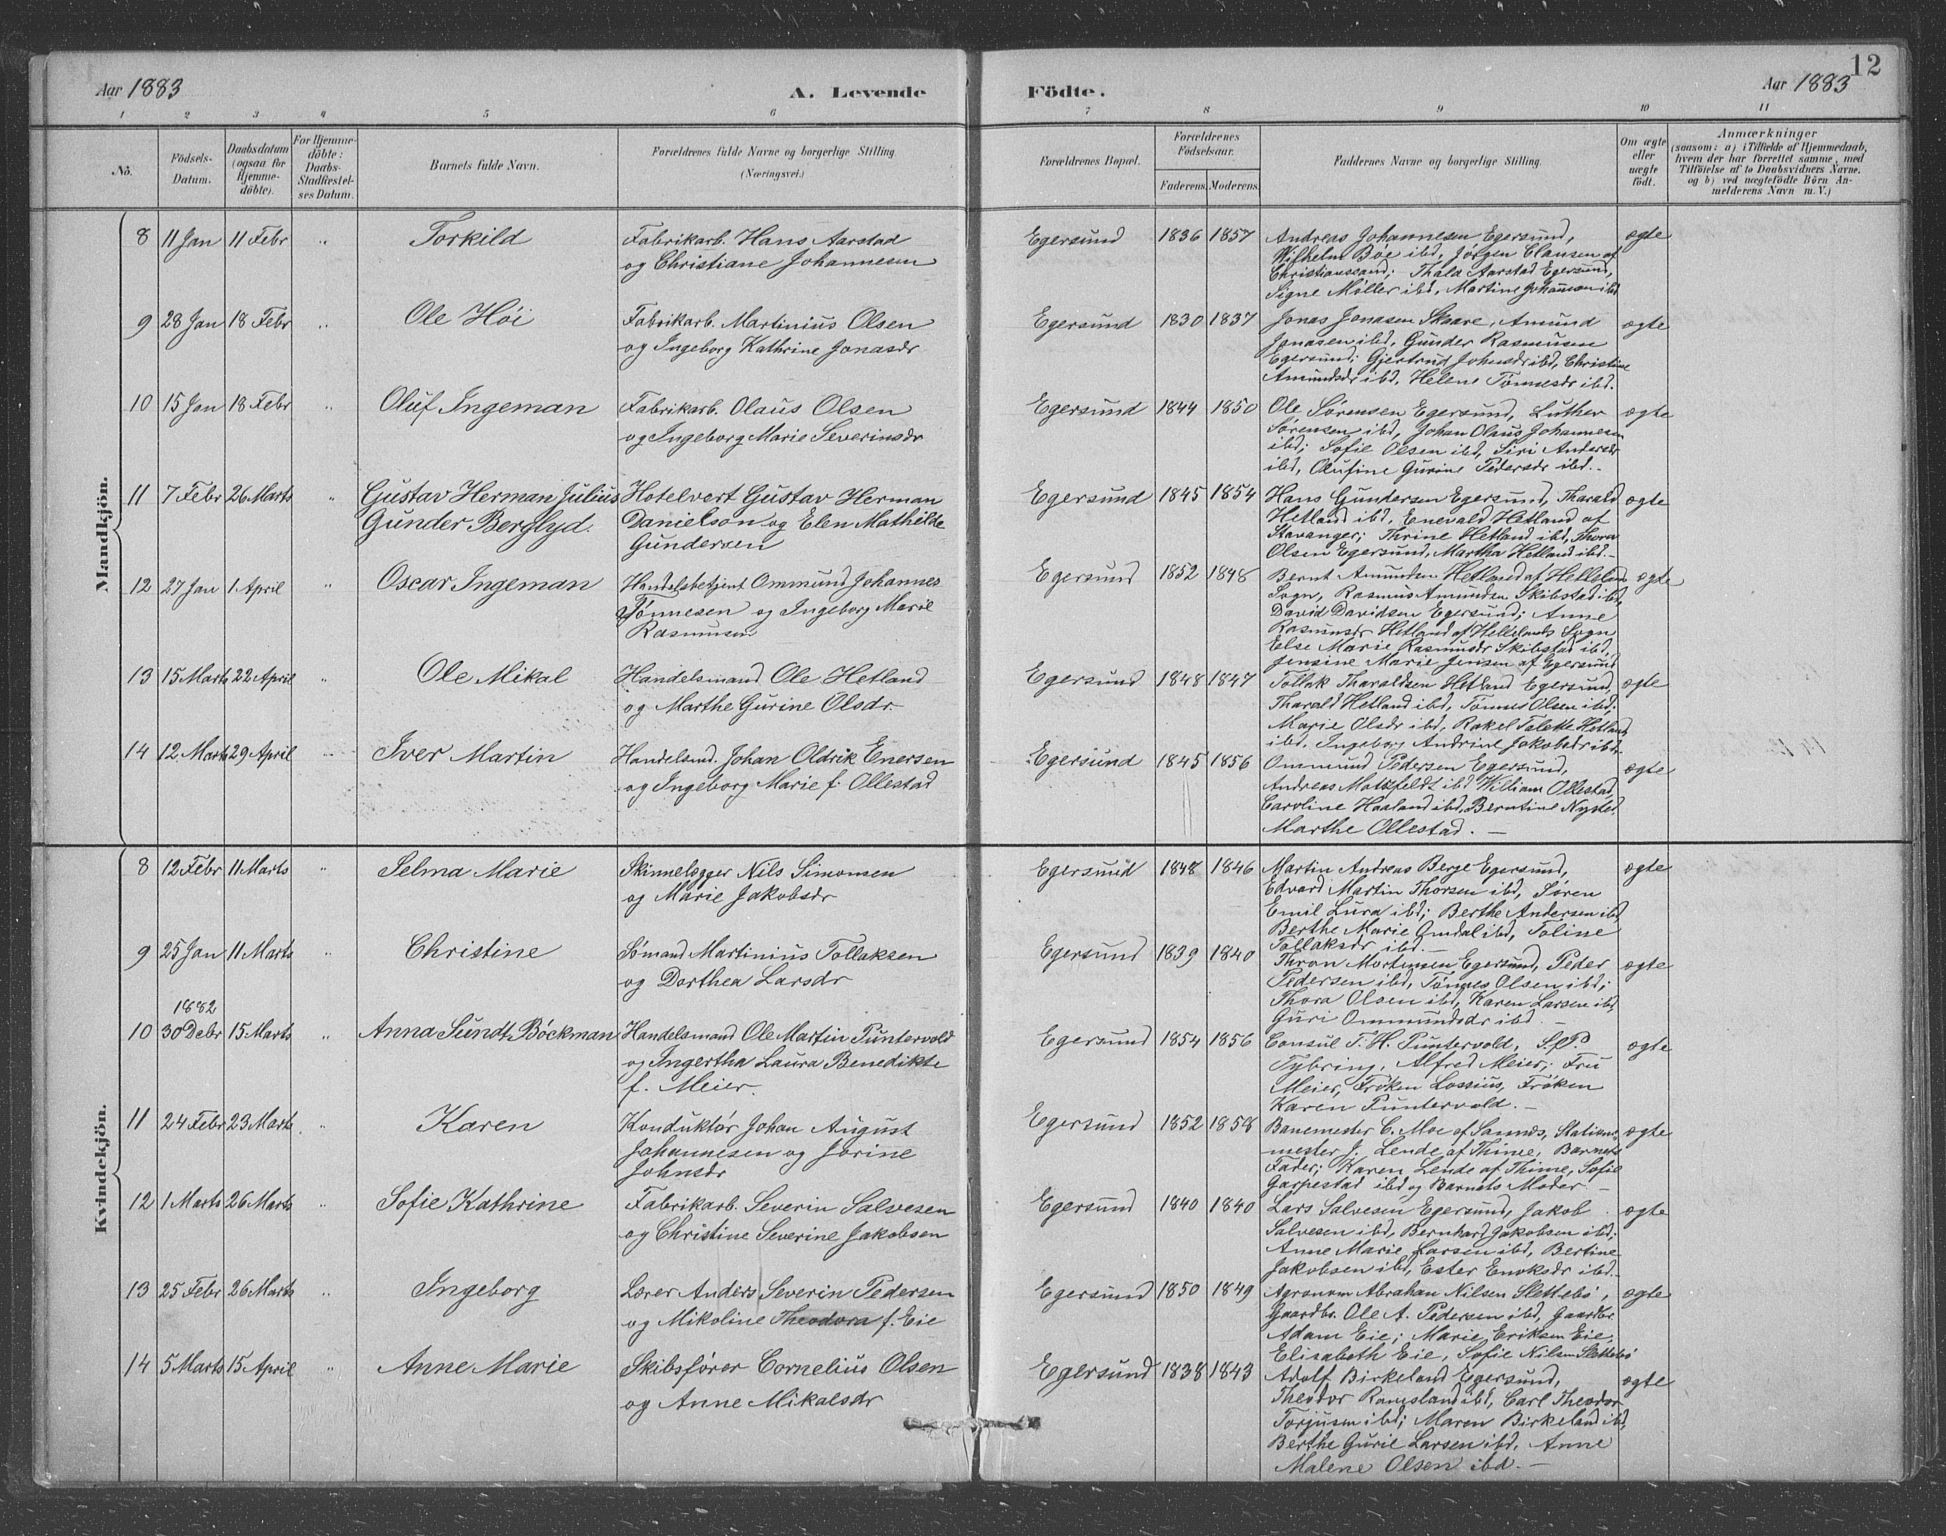 12
Aar 1883
A. Levende
Födte.
Aar 1883
1 2 3 4 5 6 7 8 9 10 11
No.
Födsels-
Datum.
Daabsdatum
(ogsaa for
Hjemme-
döbte).
For Hjemme-
döbte:
Daabs-
Stadfæstel-
ses Datum.
Barnets fulde Navn.
Forældrenes fulde Navne og borgerlige Stilling
(Næringsvei.)
Forældrenes Bopæl.
Forældrenes
Födselsaar.
Faderens. Moderens.
Faddernes Navne og borgerlige Stilling.
Om ægte
eller
uægte
födt.
Anmærkninger
(saasom: a) i Tilfælde af Hjemmedaab,
hvem der har forrettet samme, med
Tilföielse af to Daabsvidners Navne.
og b) ved uægtefödte Börn An-
melderens Navn m. V.)
Mandkjön.
8 11 Jan 11 Febr " Torkild
Fabrikarb. Hans Aarstad
og Christiane Johannesen
Egersund 1836 1857
Andreas Johannesen Egersund,
Wilhelm Bøe ibd, Jørgen Clausen af
Christianssand; Thala Aarstad Egersund,
Signe Møller ibd, Martine Johannesen ibd
ægte
9 28 Jan 18 Febr " Ole Høi
Fabrikarb. Martinius Olsen
og Ingeborg Kathrine Jonasdr
Egersund 1830 1837
Jonas Jonasen Skaare, Amund
Jonasen ibd, Gunder Rasmusen
Egersund; Gjertrud Johnsdr ibd, Christine
Amundsdr ibd, Helene Tønnesdr ibd.
ægte
10 15 Jan 18 Febr " Oluf Ingeman
Fabrikarb. Olaus Olsen
og Ingeborg Marie Severinsdr
Egersund 1844 1850
Ole Sørensen Egersund, Luther
Sørensen ibd, Johan Olaus Johannesen
ibd; Sofie Olsen ibd, Siri Andersdr
ibd, Olufine Gurine Pedersdr ibd.
ægte
11 7 Febr 26 Marts " Gustav Herman Julius
Gunder Berglyd.
Hotelvert Gustav Herman
Danielson og Elen Mathilde
Gundersen
Egersund 1845 1854
Hans Gundersen Egersund, Tharald
Hetland ibd, Enevald Hetland af
Stavanger; Thrine Hetland ibd, Thora
Olsen Egersund, Martha Hetland ibd.
ægte
12 27 Jan 1 April " Oscar Ingeman
Handelsbetjent Ommund Johannes
Tønnesen og Ingeborg Marie
Rasmusen
Egersund 1852 1848
Bernt Amundsen Hetland af Hellelands
Sogn, Rasmus Amundsen Skibstad ibd,
David Davidsen Egersund; Anne
Rasmusdr Hetland af Hellelands Sogn
Else Marie Rasmusdr Skibstad ibd,
Jensine Marie Jensen af Egersund
ægte
13 15 Marts 22 April " Ole Mikal
Handelsmand Ole Hetland
og Marthe Gurine Olsdr
Egersund 1848 1847
Tollak Tharaldsen Hetland Egersund,
Tharald Hetland ibd, Tønnes Olsen ibd;
Marie Olsdr ibd, Rakel Talette Hetland
ibd, Ingeborg Andrine Jakobsdr ibd
ægte
14 12 Marts 29 April " Iver Martin
Handelsmd. Johan Oldrik Enersen
og Ingeborg Marie f. Ollestad
Egersund 1845 1856
Ommund Pedersen Egersund,
Andreas Matzfeldt ibd William Ollestad,
Caroline Haaland ibd, Berntine Nysted,
Marthe Ollestad.
ægte
Kvindekjön.
8 12 Febr 11 Marts " Selma Marie
Skindlægger Nils Simonsen
og Marie Jakobsdr
Egersund 1848 1846
Martin Andreas Berge Egersund,
Edvard Martin Thorsen ibd, Søren
Emil Lura ibd; Berthe Andersen ibd
Berthe Marie Omdal ibd, Toline
Tollaksdr ibd.
ægte
9 25 Jan 11 Marts " Christine
Sømand Martinius Tollaksen
og Dorthea Larsdr
Egersund 1839 1840
Thron Mortensen Egersund, Peder
Pedersen ibd, Tønnes Olsen ibd;
Thora Olsen ibd, Karen Larsen ibd,
Guri Ommundsdr ibd.
ægte
1882
10 30 Debr 15 Marts " Anna Sundt Bøckman
Handelsmand Ole Martin Puntervold
og Ingertha Laura Benedikte
f. Meier.
Egersund 1854 1856
Consul T. H. Puntervold, S. P.
Tybring, Alfred Meier; Fru
Meier, Frøken Lossius, Frøken
Karen Puntervold.
ægte
11 24 Febr 23 Marts " Karen
Konduktør Johan August
Johannesen og Jorine
Johnsdr
Egersund 1852 1858
Banemester C. Moe af Sannæs, Stations-
mester J. Lende af Thime, Barnets
Fader; Karen Lende af Thime, Sofie
Garpestad ibd og Barnets Moder.
ægte
12 1 Marts 26 Marts " Sofie Kathrine
Fabrikarb. Severin Salvesen
og Christine Severine Jakobsen
Egersund 1840 1840
Lars Salvesen Egersund, Jakob
Salvesen ibd, Bernhard Jakobsen ibd;
Anne Marie Larsen ibd, Bertine
Jakobsen ibd, Ester Enoksdr ibd.
ægte
13 25 Febr 26 Marts " Ingeborg
Lærer Anders Severin Pedersen
og Mikoline Theodora f. Eie
Egersund 1850 1849
Agronom Abraham Nilsen Slettebø,
Gaardbr. Ole A. Pedersen ibd, Gaardbr
Adam Eie; Marie Eriksen Eie,
Elisabeth Eie, Sofie Nilsen Slettebø
ægte
14 5 Marts 15 April " Anne Marie
Skibsfører Cornelius Olsen
og Anne Mikalsdr
Egersund 1838 1843
Adolf Birkeland Egersund,
Theodor Ramsland ibd, Carl Theodor
Torjusen ibd; Maren Birkeland ibd,
Berthe Gurie Larsen ibd, Anne
Malene Olsen ibd.
ægte